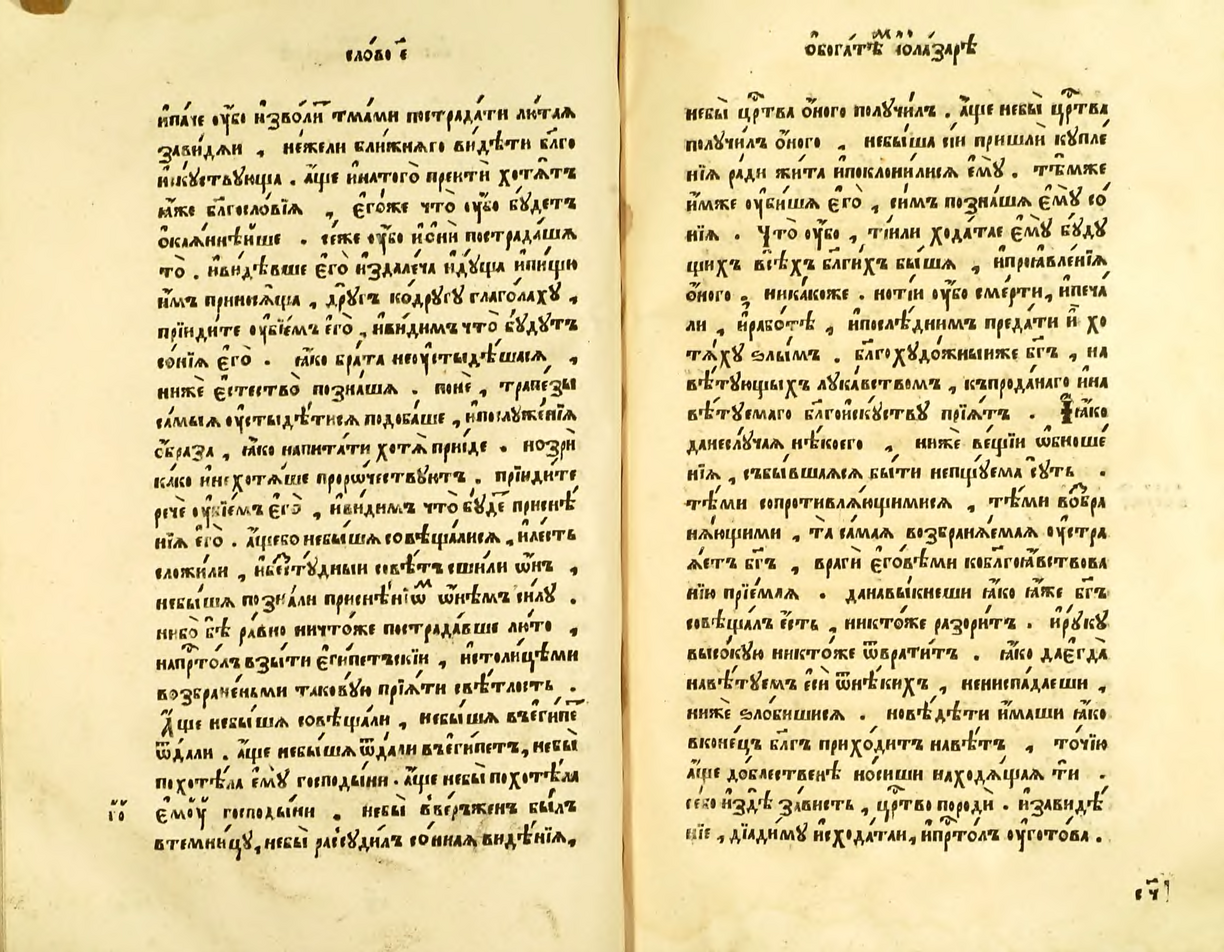 сло́во є҃
и҆па́че оу҆бо и҆зво́ли тма́ми пострада́ти лю́таѧ
зави́дѧи , не́жели бли́жнѧго ви́дѣти бл҃го
и҆скуствующа . а҆́ще и҆натого̀ преитѝ хотѧ́тъ
ꙗ҆́же бл҃гослове́нїѧ , є҆го́же что̀ оу҆́бо бу́детъ
о҆каѧ́ннѣйше . се́же оу҆́бо и҆сїѝ пострада́шѧ
то̀ . и҆ви́дѣвше є҆го̀ и҆здале́ча и҆ду́ща и҆пи́щю
и҆̀мъ принюсѧ́ща , дру́гъ ко́другу глаго́лаху ,
прїиди́те оу҆бїе́мъ є҆го̀ , и҆ви́димъ что̀ бу́дутъ
со́нїѧ є҆го̀ . ꙗ҆́ко бра́та неоу҆стыдѣ́шасѧ ,
нижѐ є҆стество̀ позна́шѧ . понѐ , трапе́зы
са́мыѧ оу҆стыдѣ́тисѧ подоба́ше , и҆послуже́нїѧ
о҆́браза , ꙗ҆́ко напита́ти хотѧ̀ прїи́де . нозрѝ
ка́ко и҆нехотѧ́ще проро́чествуютъ . прїиди́те
речѐ оу҆бїе́мъ є҆го̀ , и҆ви́димъ что̀ бу́де приснѣ́
нїѧ є҆го̀ . а҆́щебо небы́шѧ совѣща́лисѧ , и҆ле́сть
сложи́ли , и҆безсту́дныи совѣ́тъ сши́ли ѡ҆́нъ ,
небы́шѧ позна́ли приснѣ́нїѡм ѡ҆́нѣмъ си́лу .
ни́бо бѣ̀ ра́вно ничто́же пострада́вше лю́то ,
напрⷭ҇то́лъ взы́ти є҆ги́петъскїи , и҆столи́цѣми
возбране́ньми такову́ю прїѧ́ти свѣ́тлость .
А҆́ще небы́шѧ совѣща́ли , небы́шѧ въє҆ги́пе
ѿда́ли . а҆́ще небы́шѧ ѿда́ли въє҆ги́петъ , небы̀
похотѣ́ла є҆му̀ господы́ни . а҆́ще небы̀ похотѣ́ла
є҆моу̀ господы́ни . небы̀ вве́рженъ бы́лъ
втемни́цу , небы̀ разсуди́лъ со́ннаѧ видѣ́нїѧ ,
ѡ҆бога́тѣмъ и҆ѡла́зарѣ
небы̀ црⷭ҇тва о҆́ного получи́лъ . а҆́ще небы̀ црⷭ҇тва
получи́лъ о҆́ного , небы́ша сїѝ пришлѝ ку́пле
нїѧ ра́ди жи́та и҆поклони́лисѧ є҆му̀ . тѣ́мже
и҆́мже оу҆би́шѧ є҆го̀ , си́мъ позна́шѧ є҆му̀ со́
нїѧ . Что̀ оу҆́бо , тїи́ли хода́тае є҆му̀ бу́ду
щихъ всѣ́хъ бл҃ги́хъ бы́шѧ , и҆просла́вленїѧ
о҆́ного , ника́коже . но́тїи оу҆́бо сме́рти , и҆печа́
ли , и҆рабо́тѣ , и҆послѣ́днимъ преда́ти и҆̀ хо
тѧ́ху ѕлы́мъ . бл҃гохудо́жныиже бг҃ъ , на
вѣ́тующыхъ лука́вствомъ , къпро́данаго и҆на
вѣ́туемаго бл҃гои́скуству прїѧ́тъ . И҆ ꙗ҆́ко
данеслу́чаѧ нѣ́коего , нижѐ ве́щїи ѡ҆бноше́
нїѧ , събы́вшаѧсѧ бы́ти непщу́ема су́ть .
тѣ́ми сопротивлѧ́ющимисѧ , тѣ́ми возбра
нѧ́ющими , та̀ са́маѧ возбранѧ́емаѧ оу҆стра
ѧ́етъ бг҃ъ , врагѝ є҆гове́ми коблгоꙗ҆́вствова
нїю прїе́млѧ . данавы́кнеши ꙗ҆́ко ꙗ҆́же бг҃ъ
совѣща́лъ є҆́сть , никто́же разори́тъ . и҆ру́ку
высо́кую никто́же ѿврати́тъ . ꙗ҆́ко дає҆гда̀
навѣ́туемъ є҆сѝ ѿнѣ́кихъ , нениспа́даеши ,
нижѐ ѕло́бишисѧ . новѣ́дѣти и҆́маши ꙗ҆́ко
вконе́цъ бл҃гъ прихо́дитъ навѣ́тъ , то́чїю
а҆́ще до́блественѣ но́сиши находѧ́щаѧ тѝ .
се́бо и҆здѣ̀ за́висть , црⷭ҇тво породѝ . и҆зави́дѣ
нїе , дїади́му и҆схода́таи , и҆прⷭ҇то́лъ оу҆гото́ва .
сч҃